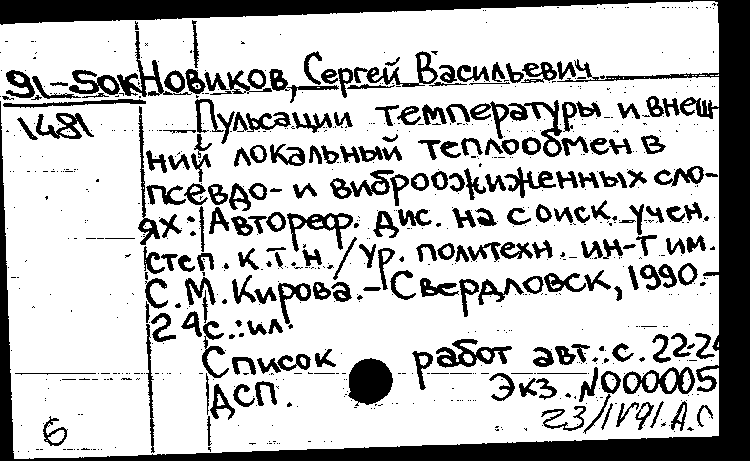 91-50к Новиков, Сергей Васильевич
1481 Пульсации температуры и внеш-
ний локальный теплообмен в
псевдо- и виброожиженных сло-
ях: Автореф. дис. на соиск. учен.
степ. к.т.н. / Ур. политехн. ин-т им.
С.М. Кирова. - Свердловск, 1990.-
24с.:ил.
Список работ авт.: с. 22-24
ДСП. Экз. №000005
6 23/IV91.